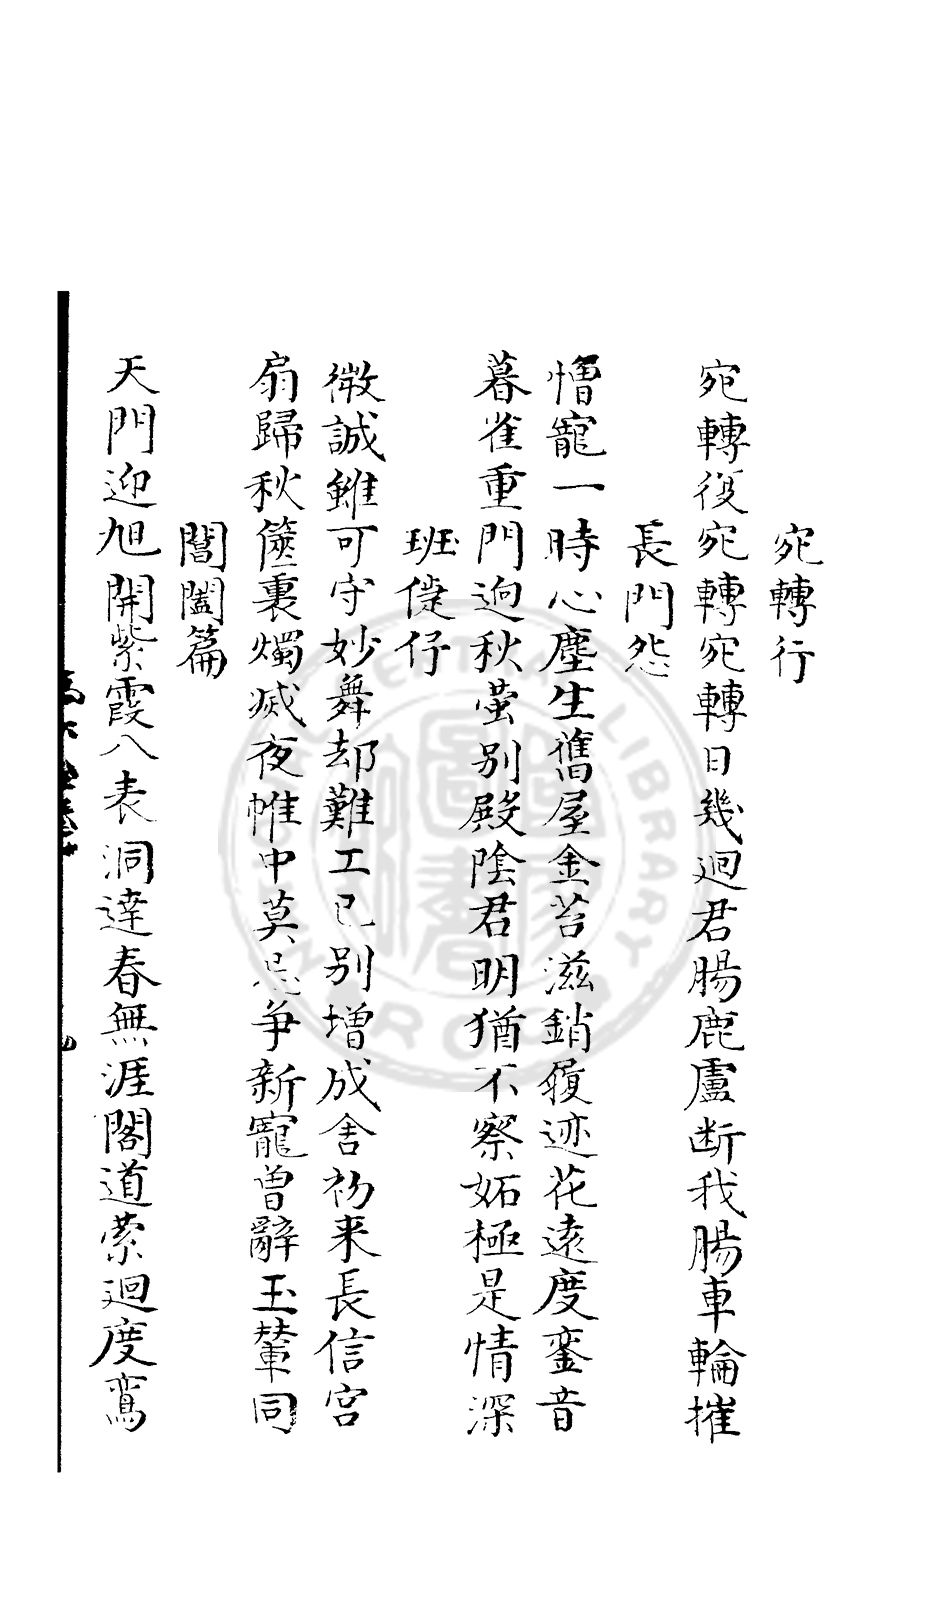 宛轉行
宛轉復宛轉宛轉日幾迴君腸鹿盧断我腸車輪摧
長門怨
憎寵一時心塵生舊屋金苔滋銷履迹花遠度鑾音
暮雀重門迥秋螢别殿陰君明猶不察妬極是情深
班倢伃
微誠雖可守妙舞却難工已别增成舍初来長信宮
扇歸秋篋裏燭滅夜帷中莫忌争新寵曾辭玉輦同
閶闔篇
天門迎旭開紫霞八表洞達春無涯閣道縈迴度鸞